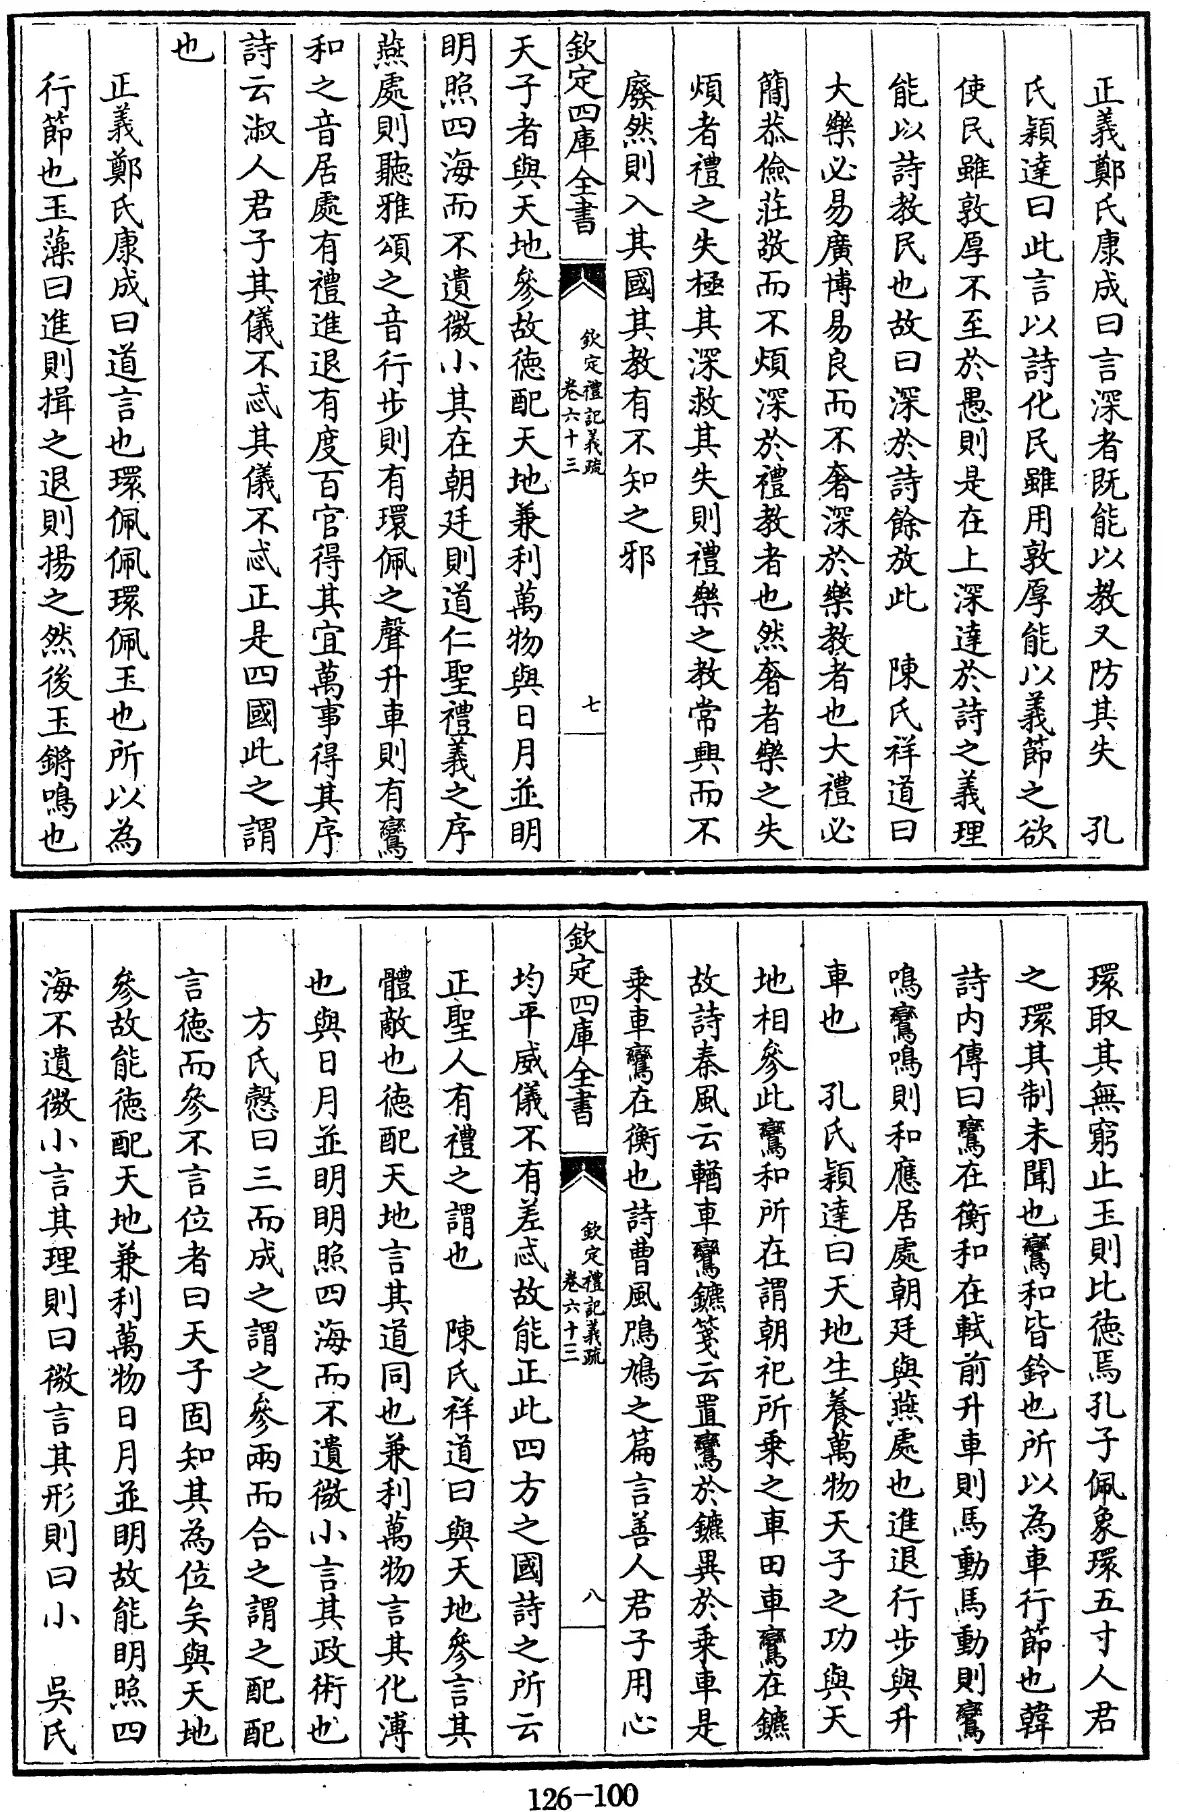 正義鄭氏康成曰言深者既能以教又防其失　孔
氏穎達曰此言以詩化民雖用敦厚能以義節之欲
使民雖敦厚不至於愚則是在上深達於詩之義理
能以詩教民也故曰深於詩餘放此　陳氏祥道曰
大樂必易廣博易良而不奢深於樂教者也大禮必
簡恭儉莊敬而不煩深於禮教者也然奢者樂之失
煩者禮之失極其深救其失則禮樂之教常興而不
廢然則入其國其教有不知之邪
欽定四庫全書
欽定禮記義疏
卷六十三
七
天子者與天地參故德配天地兼利萬物與日月並明
明照四海而不遺微小其在朝廷則道仁聖禮義之序
燕處則聽雅頌之音行步則有環佩之聲升車則有鸞
和之音居處有禮進退有度百官得其宜萬事得其序
詩云淑人君子其儀不忒其儀不忒正是四國此之謂
也
正義鄭氏康成曰道言也環佩佩環佩玉也所以為
行節也玉藻曰進則揖之退則揚之然後玉鏘鳴也
環取其無窮止玉則比德焉孔子佩象環五寸人君
之環其制未聞也鸞和皆鈴也所以為車行節也韓
詩內傳曰鸞在衡和在軾前升車則馬動馬動則鸞
鳴鸞鳴則和應居處朝廷與燕處也進退行步與升
車也　孔氏穎達曰天地生養萬物天子之功與天
地相參此鸞和所在謂朝祀所乘之車田車鸞在鑣
故詩秦風云輶車鸞鑣箋云置鸞於鑣異於乘車是
乘車鸞在衡也詩曹風鳲鳩之篇言善人君子用心
欽定四庫全書
欽定禮記義疏
卷六十三
八
均平威儀不有差忒故能正此四方之國詩之所云
正聖人有禮之謂也　陳氏祥道曰與天地參言其
體敵也德配天地言其道同也兼利萬物言其化溥
也與日月並明明照四海而不遺微小言其政術也
方氏慤曰三而成之謂之參兩而合之謂之配配
言德而參不言位者曰天子固知其為位矣與天地
參故能德配天地兼利萬物日月並明故能明照四
海不遺微小言其理則曰微言其形則曰小　吳氏
126-100